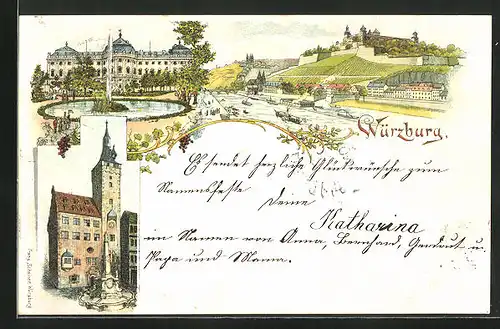 Würzburg.
Es sendet herzliche Glückwünsche zum
Namensfeste
Deine
Katharina
im Namen von Anna, Bernhard, Gertraut u.
Papa und Mama.